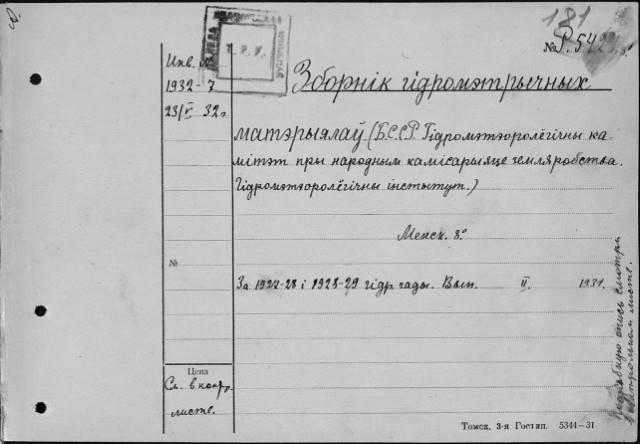 181
№ Р.5429.8°
Инв. №
1932-7
23/V 32г.
Зборнік гідромэтрычных
матэрыялаў (БССР. Гідромэтэоролёгічны ка-
мітэт при народным камісарыяце земляробства.
Гідромэтэоролёгічны інстытут.)
Менск. 8°
№
За 1927-28 і 1928-29 гідр гады. Вып. II. 1931.
Цена
См. в контр.
листе.
Подробную опись смотри
в контрольном листе.
Томск. 3-я Гостип. 5344—31